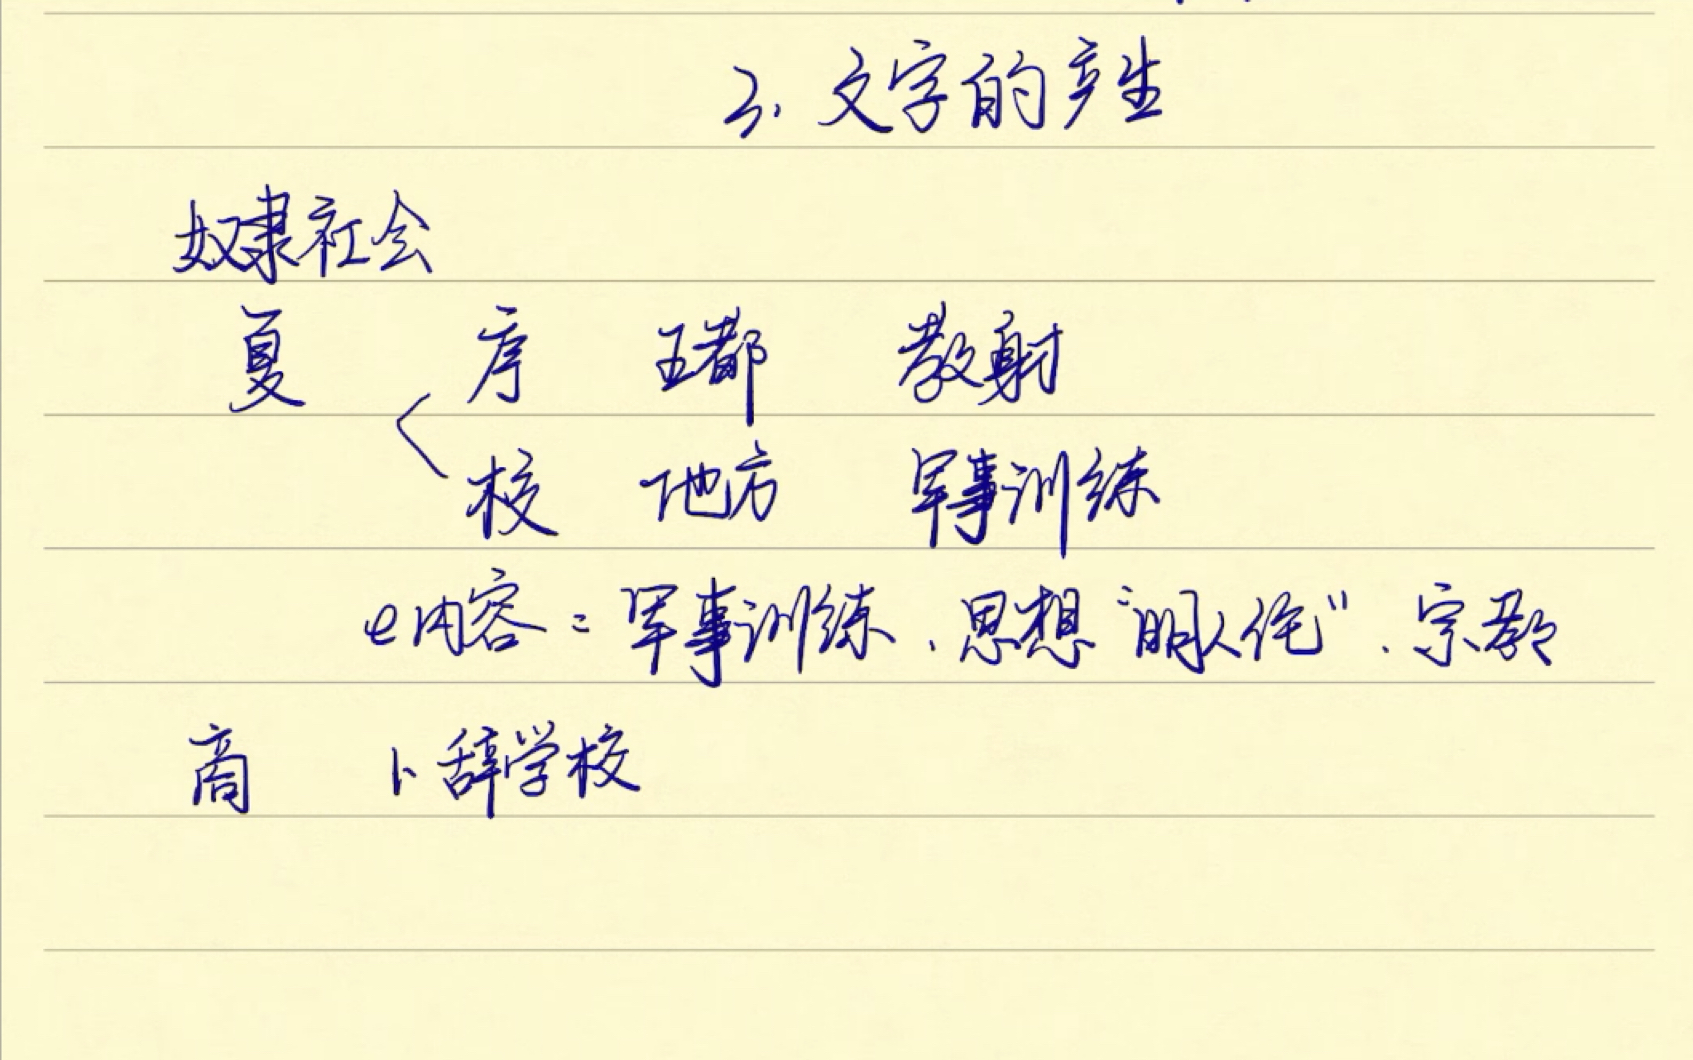 3. 文字的产生
奴隶社会
夏 序 王都 教射
校 地方 军事训练
e内容：军事训练、思想“明人伦”、宗教
商 卜辞学校